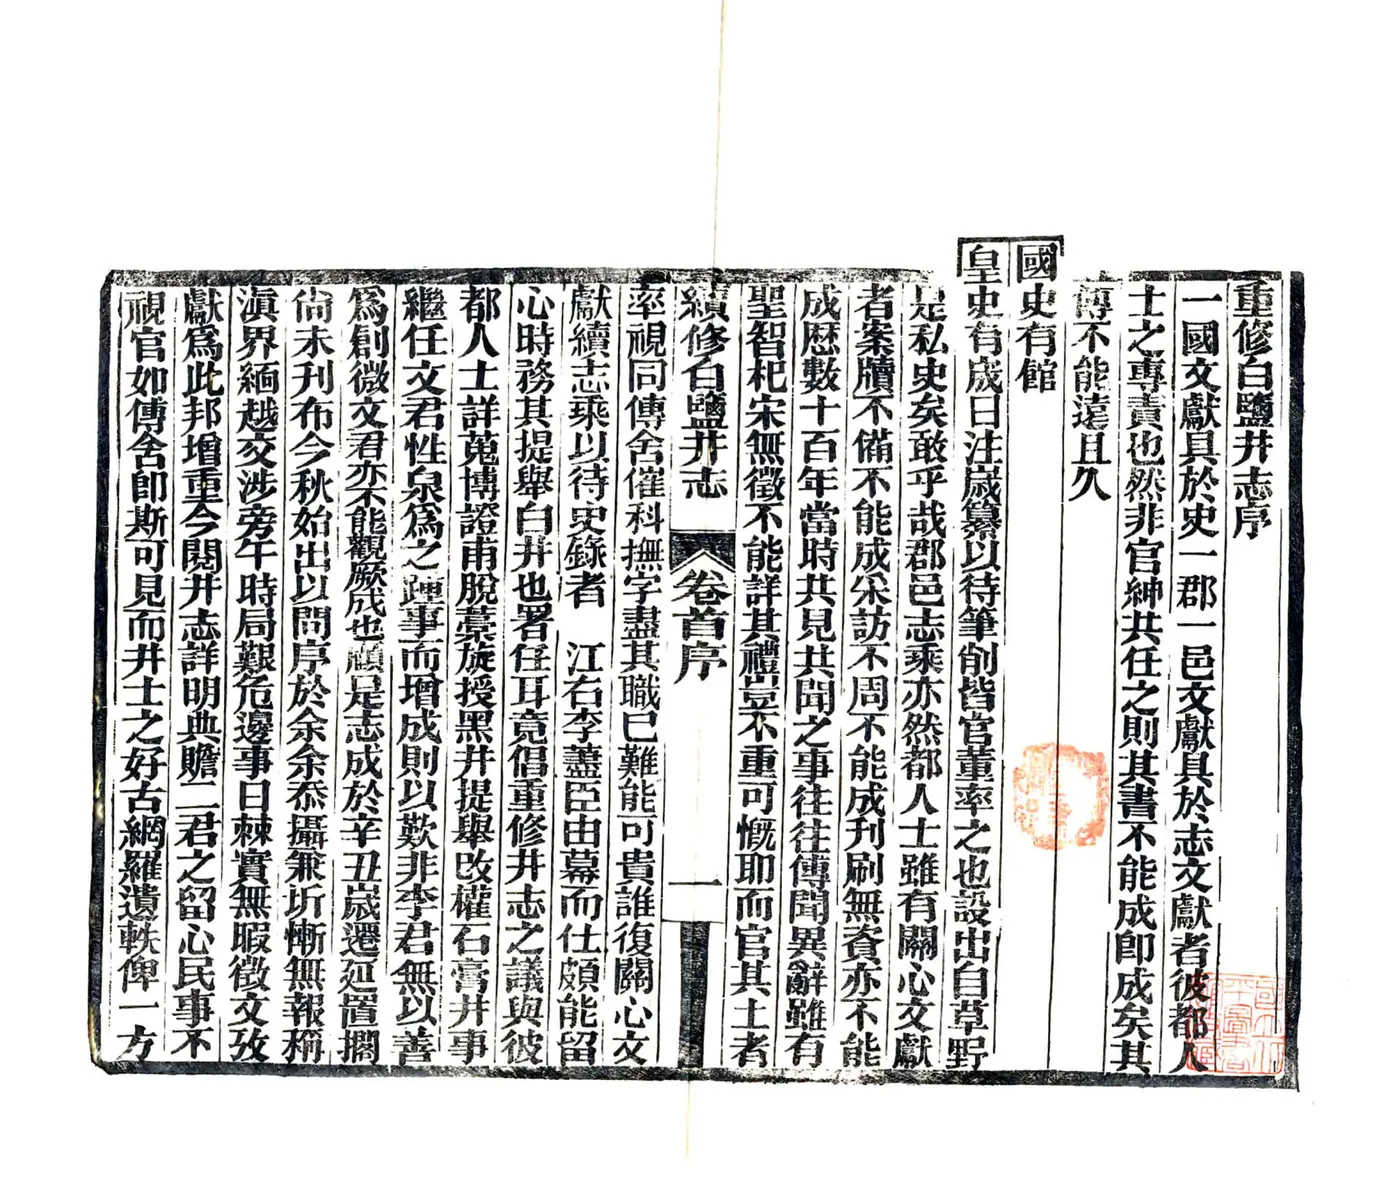 重修白鹽井志序
一國文獻具於史一郡一邑文獻具於志文獻者彼都人
士之專責也然非官紳共任之則其書不能成即成矣其
傳不能遠且久
國史有館
皇史有宬日注歲纂以待筆削皆官董率之也設出自草野
是私史矣敢乎哉郡邑志乘亦然都人士雖有關心文獻
者案牘不備不能成采訪不周不能成刊刷無資亦不能
成歷數十百年當時共見共聞之事往往傳聞異辭雖有
聖智杞宋無徵不能詳其禮豈不重可慨耶而官其土者
續修白鹽井志
卷首序
一
率視同傳舍催科撫字盡其職已難能可貴誰復關心文
獻續志乘以待史錄者 江右李藎臣由幕而仕頗能留
心時務其提舉白井也署任耳竟倡重修井志之議與彼
都人士詳蒐博證甫脫藁旋授黑井提舉改權石膏井事
繼任文君性泉為之踵事而增成則以歎非李君無以善
為創微文君亦不能觀厥成也顧是志成於辛丑歲遷延置擱
尙未刊布今秋始出以問序於余余忝攝兼圻慚無報稱
滇界緬越交涉旁午時局艱危邊事日棘實無暇徵文攷
獻為此邦增重今閱井志詳明典贍二君之留心民事不
視官如傳舍卽斯可見而井士之好古網羅遺軼俾一方